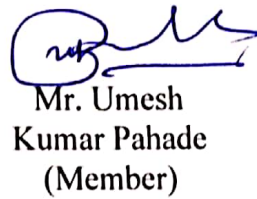 Mr. Umesh
Kumar Pahade
(Member)